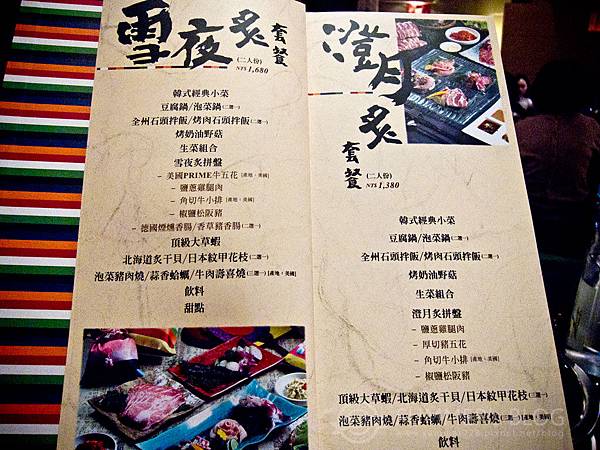 雪夜炙
套餐
(二人份)
NT$ 1,680
韓式經典小菜
豆腐鍋/泡菜鍋(二選一)
全州石頭拌飯/烤肉石頭拌飯(二選一)
烤奶油野菇
生菜組合
雪夜炙拼盤
– 美國PRIME牛五花 [產地、美國]
– 鹽蔥雞腿肉
– 角切牛小排 [產地、美國]
– 椒鹽松阪豬
– 德國煙燻香腸/香草豬香腸(二選一)
頂級大草蝦
北海道炙干貝/日本紋甲花枝(二選一)
泡菜豬肉燒/蒜香蛤蠣/牛肉壽喜燒(三選一)[產地、美國]
飲料
甜點
澄月炙
套餐
(二人份)
NT$ 1,380
韓式經典小菜
豆腐鍋/泡菜鍋(二選一)
全州石頭拌飯/烤肉石頭拌飯(二選一)
烤奶油野菇
生菜組合
澄月炙拼盤
– 鹽蔥雞腿肉
– 厚切豬五花
– 角切牛小排 [產地、美國]
– 椒鹽松阪豬
頂級大草蝦/北海道炙干貝/日本紋甲花枝(三選一)
泡菜豬肉燒/蒜香蛤蠣/牛肉壽喜燒(三選一)[產地、美國]
飲料
BLOG